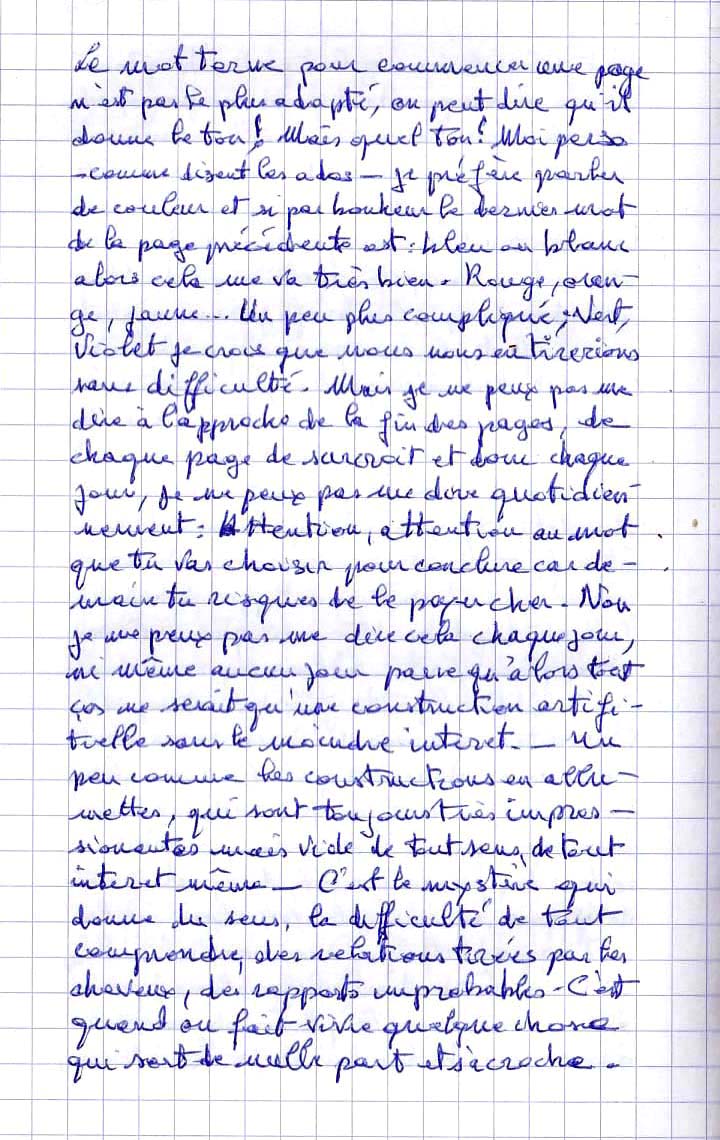 Le mot terne pour commencer une page
n'est pas le plus adapté, on peut dire qu'il
donne le ton! Mais quel ton! Moi perso
- comme disent les ados - je préfère parler
de couleur et si par bonheur le dernier mot
de la page précédente est : bleu ou blanc
alors cela me va très bien. Rouge, oran-
ge, jaune... Un peu plus compliqué, Vert,
Violet je crois que nous nous en tirerions
sans difficulté. Mais je ne peux pas me
dire à l'approche de la fin des pages, de
chaque page de surcroit et donc chaque
jour, je ne peux pas me dire quotidien-
nement : Attention, attention au mot
que tu vas choisir pour conclure car de-
main tu risques de le payer cher. Non
je ne peux pas me dire cela chaque jour,
ni même aucun jour parce qu'alors tout
ça ne serait qu'une construction artifi-
tielle sans le moindre interet. - Un
peu comme les constructions en allu-
mettes, qui sont toujours très impres-
sionantes mais vide de tout sens, de tout
interet même - C'est le mystère qui
donne du sens, la difficulté de tout
comprendre, des relations tirées par les
cheveux, des rapports improbables - C'est
quand on fait vivre quelque chose
qui sort de nulle part et s'acroche.